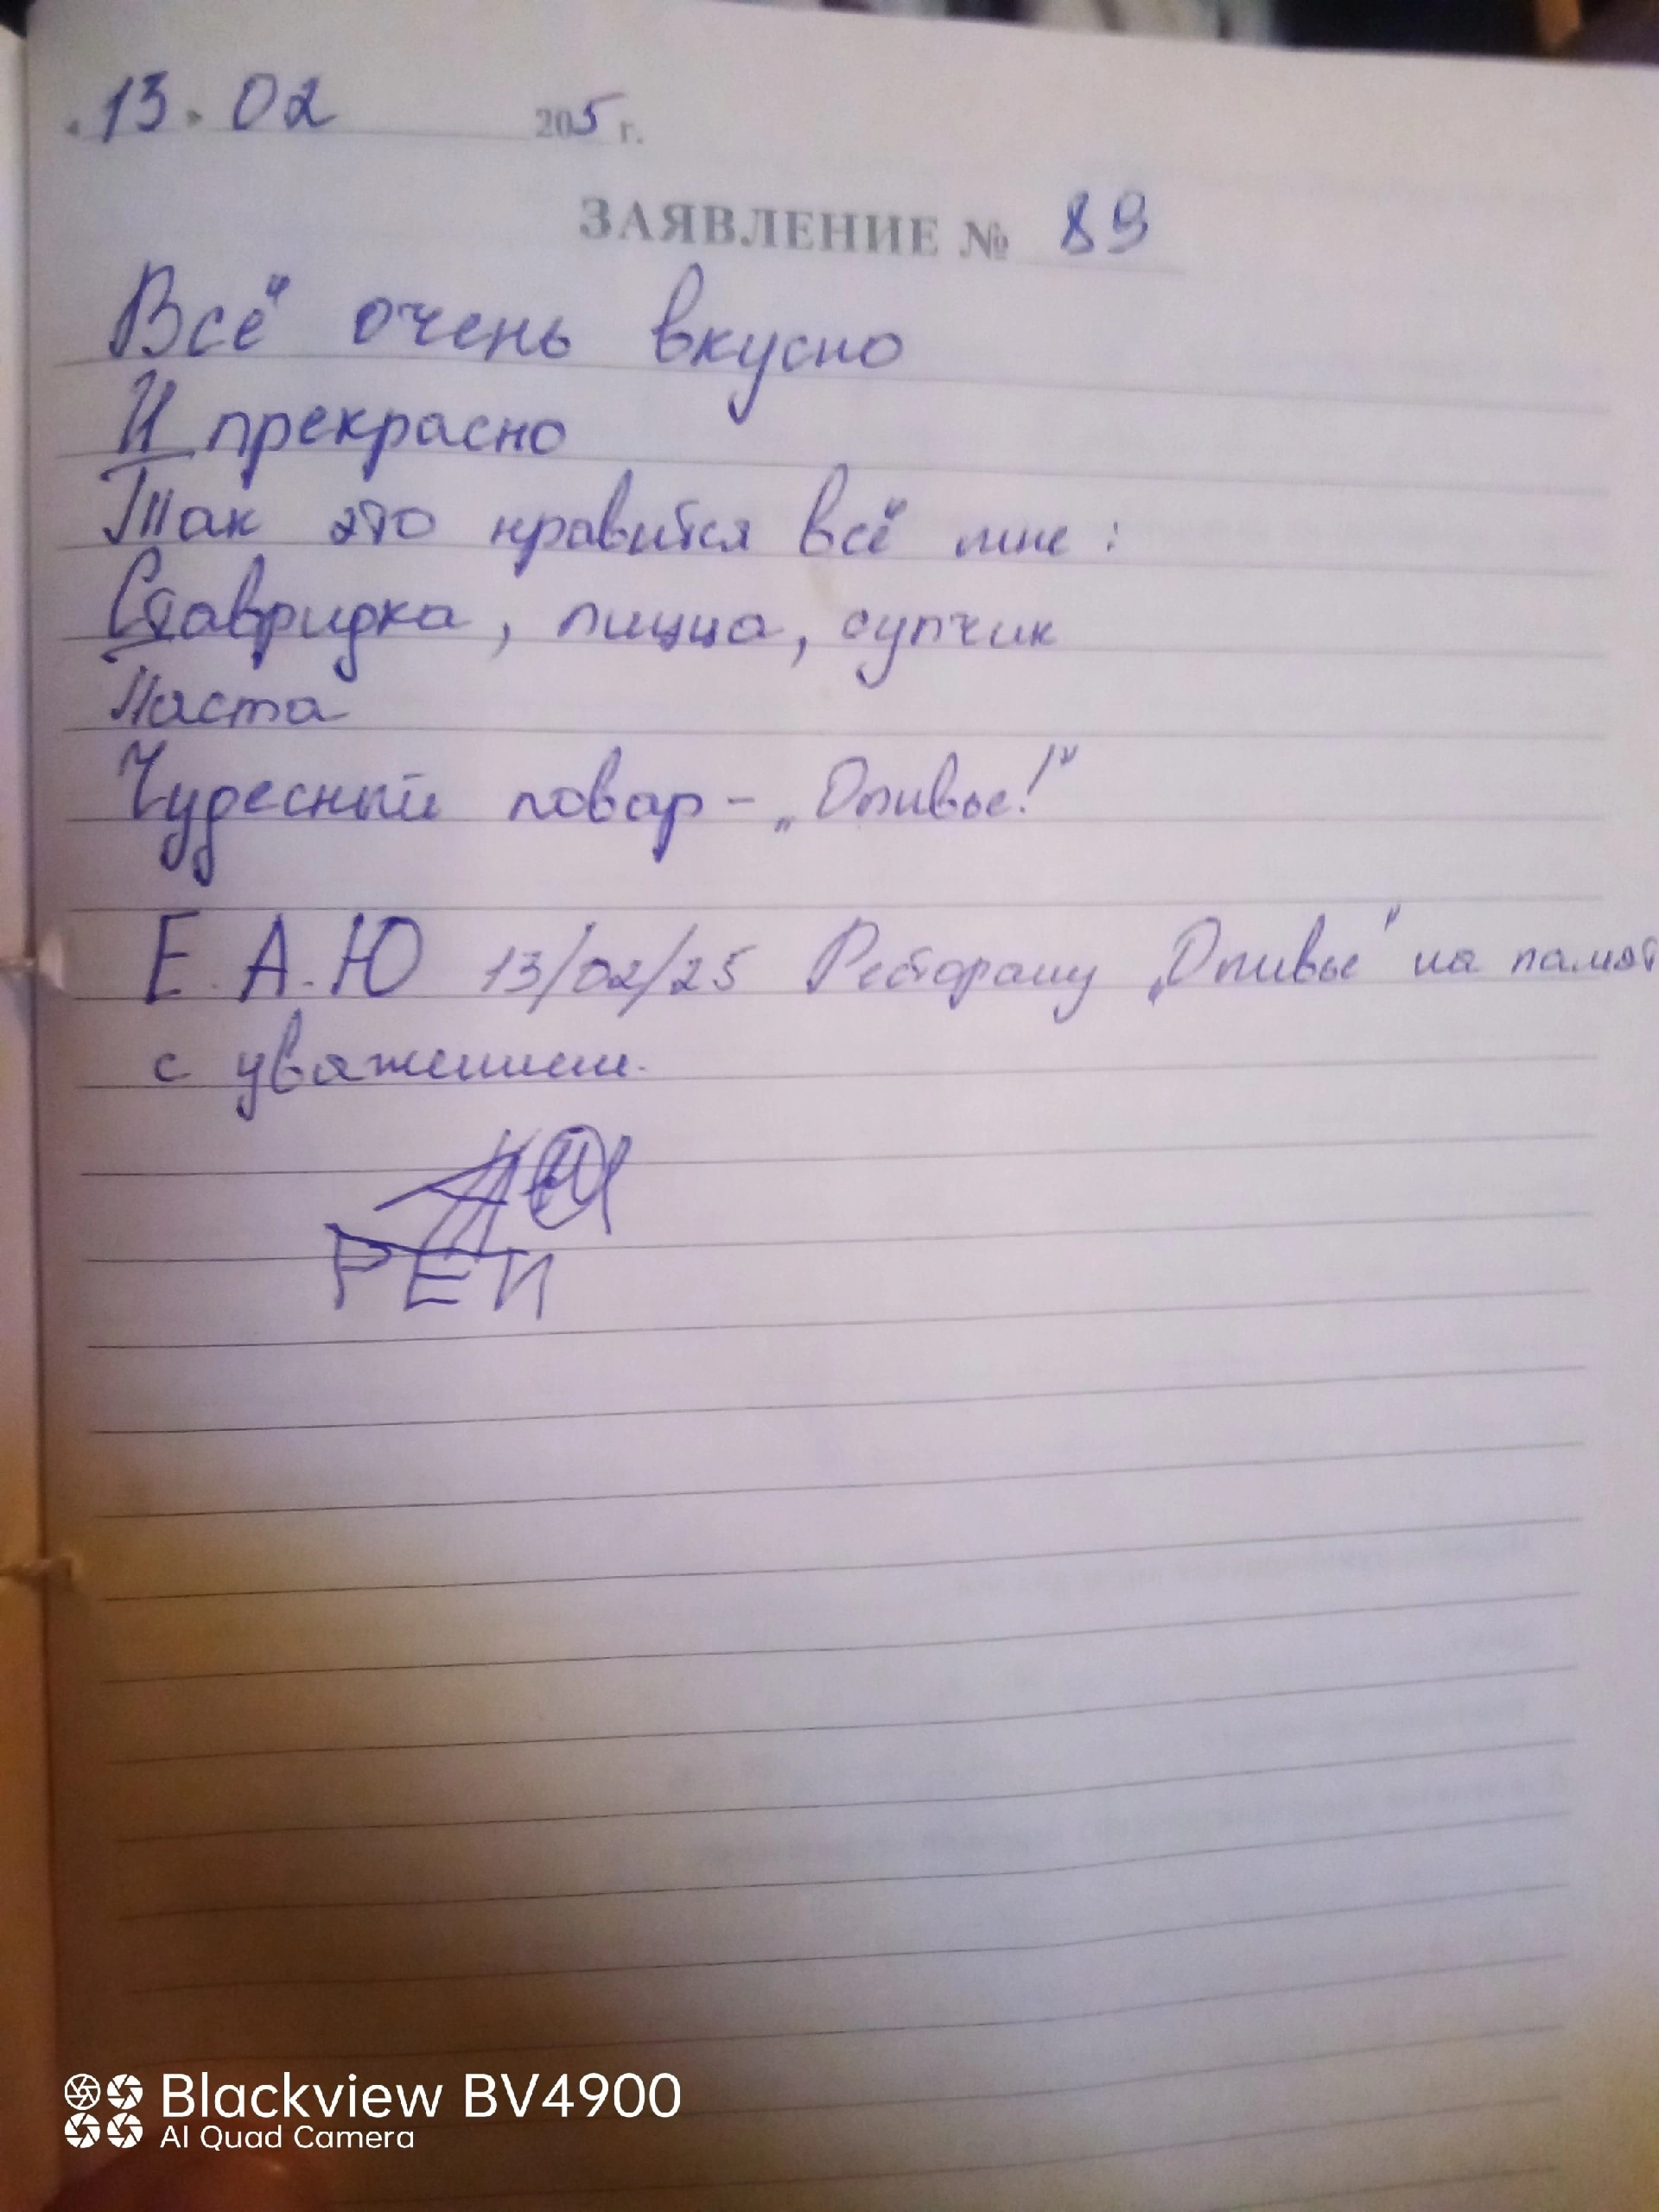 «13» 02 205 г.
ЗАЯВЛЕНИЕ № 89
Всё очень вкусно
И прекрасно
Так это нравится всё мне:
Ставридка, пицца, супчик
Паста
Чудесный повар - „Оливье!"
Е.А.Ю 13/02/25 Ресторану „Оливье" на памят
с уважением.
РЕИ
Blackview BV4900
AI Quad Camera